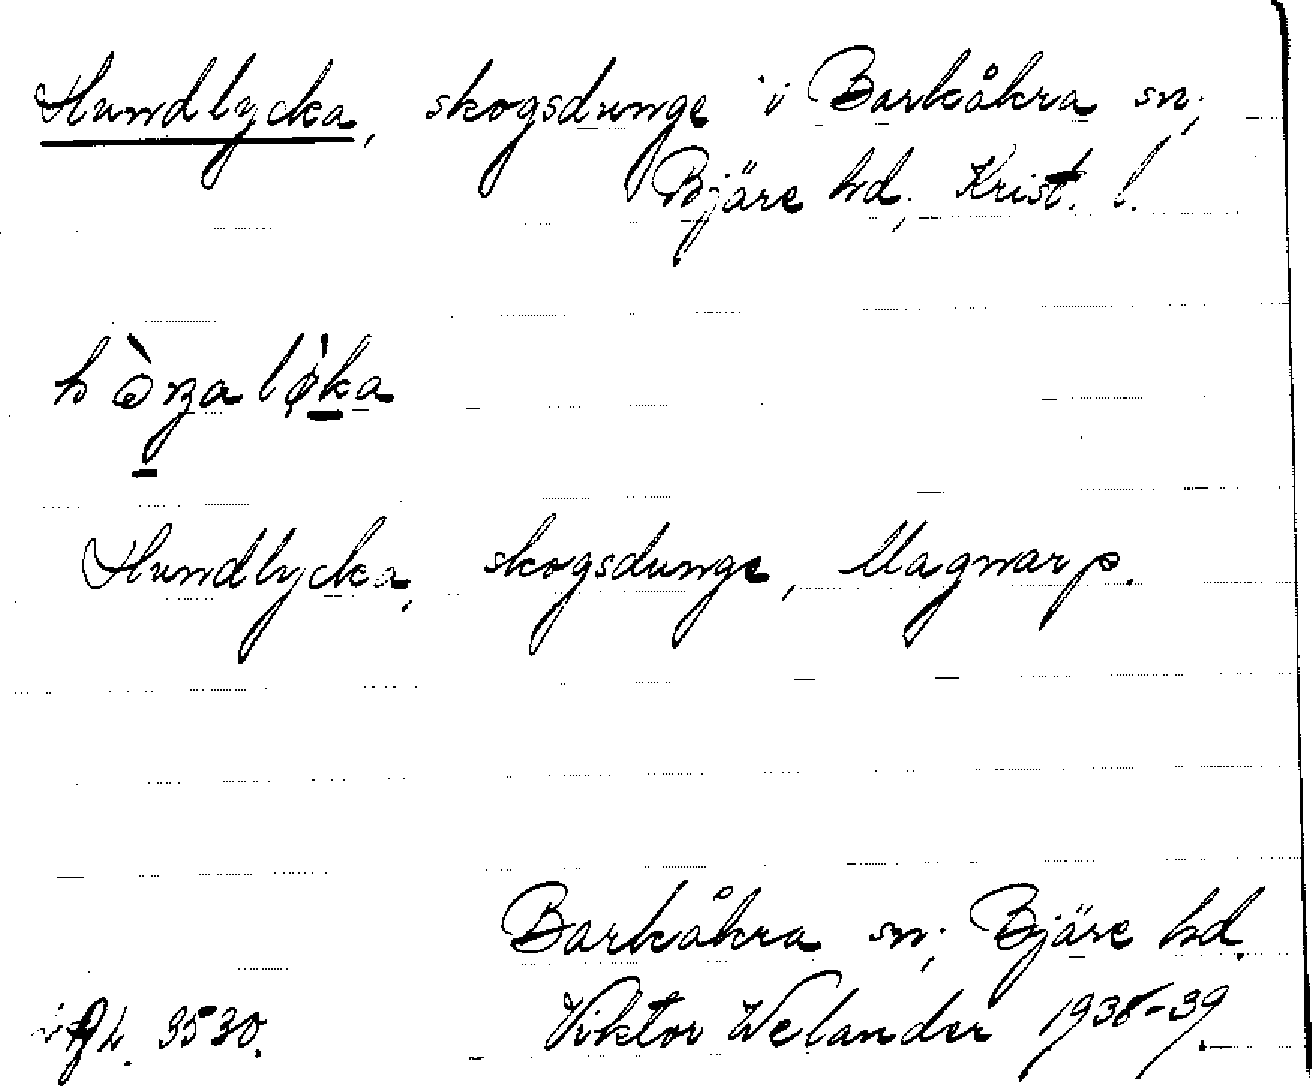 Hundlycka, skogsdunge i Barkåkra sn;
Bjäre hd; Krist. l.
Hundlycka, skogsdunge, Magnarp.
Barkåkra sn; Bjäre hd.
3530. Viktor Welander 1938-39.